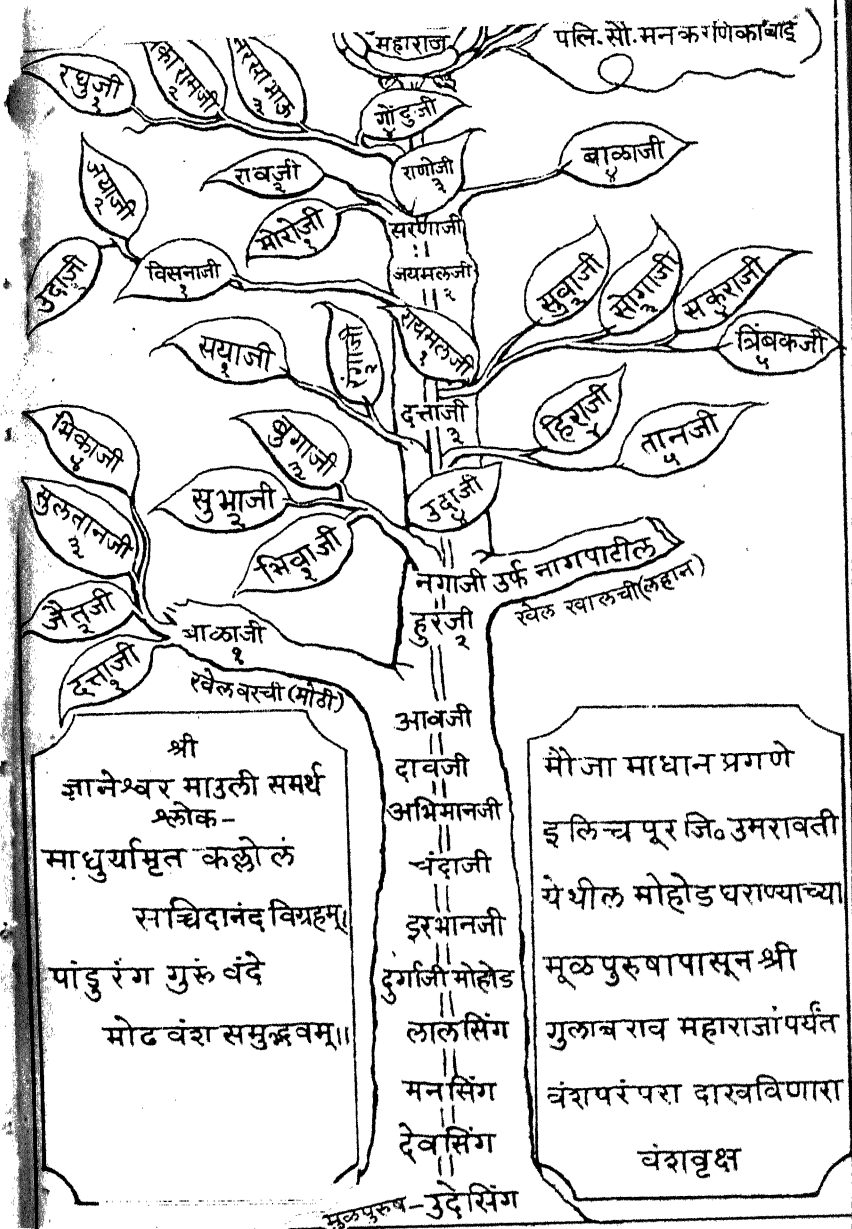 महाराज
पलि. सौ. मनकर्णिकाबाई)
रघुजी १
कारामजी २
नरसाभाऊ ३
गोंदुजी ४
रावजी २
राणोजी ३
बाळाजी ४
जयाजी २
मोरोजी १
सरणाजी
उदाजी १
विसनाजी १
जयमलजी २
सुवाजी २
सोगाजी ३
सकुराजी ४
त्रिंबकजी ५
सयाजी १
रंगाजी २
रायमलजी १
दत्ताजी ३
हिराजी ४
तानजी ५
भिकाजी ४
बुगाजी ३
सुभाजी २
उदाजी ४
सुलतानजी ३
भिवाजी १
नगाजी उर्फ नागपाटील
खेल खालची (लहान)
जैतुजी २
बाळाजी १
हुरजी २
दत्ताजी १
खेल वरची (मोठी)
आवजी
दावजी
अभिमानजी
चंदाजी
इरभानजी
दुर्गाजी मोहोड
लालसिंग
मनसिंग
देवसिंग
मुळपुरुष - उदेसिंग
श्री
ज्ञानेश्वर माउली समर्थ
श्लोक-
माधुर्यामृत कल्लोलं
सच्चिदानंद विग्रहम्।
पांडुरंग गुरुं वंदे
मोढ वंश समुद्भवम्॥
मौजा माधान प्रगणे
इलिचपूर जि० उमरावती
येथील मोहोड घराण्याच्या
मूळपुरुषापासून श्री
गुलाबराव महाराजांपर्यंत
वंशपरंपरा दाखविणारा
वंशवृक्ष